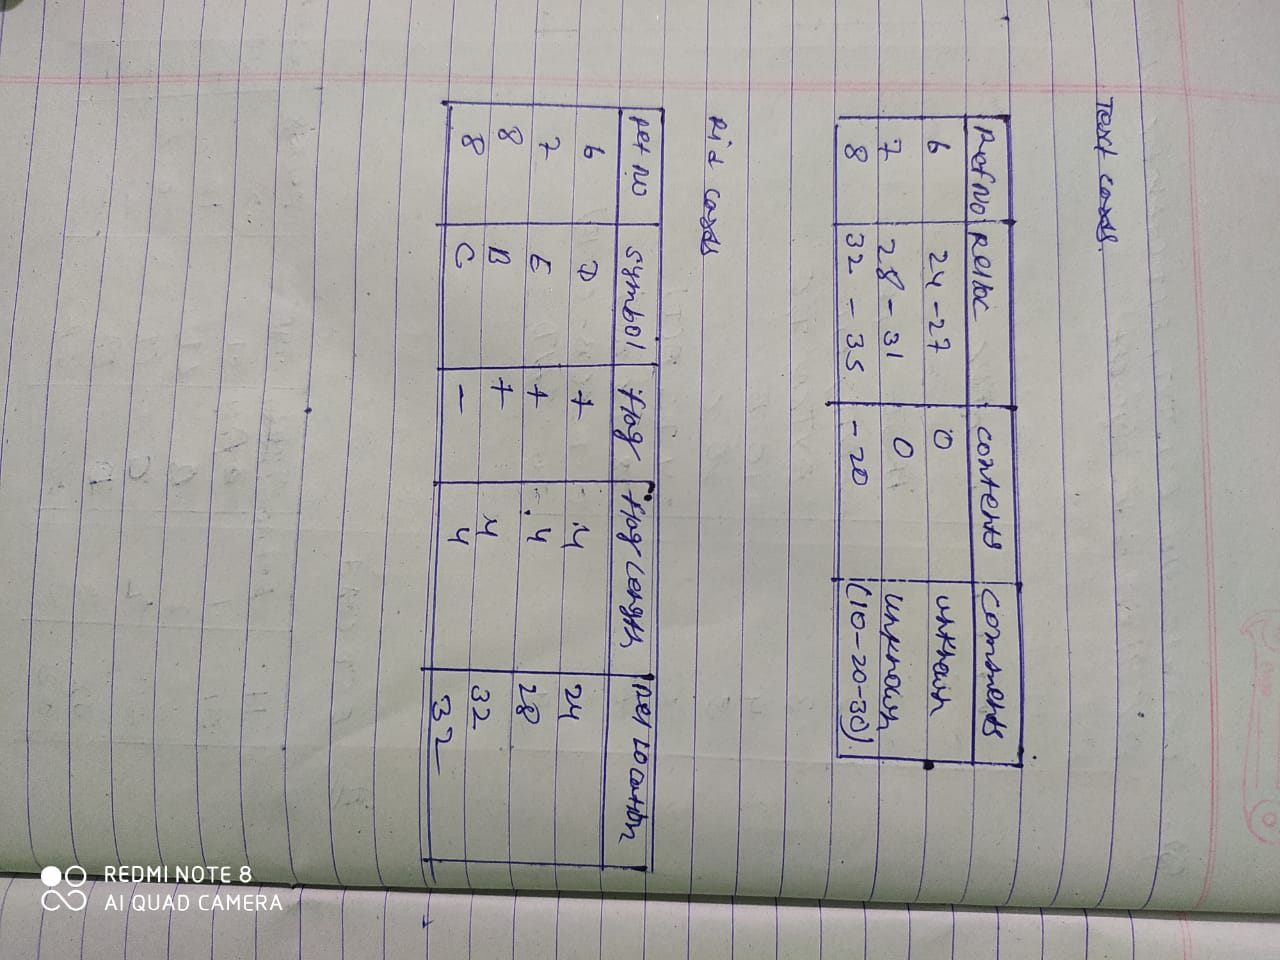 Text cards.
Ref No Relloc contents comments
6 24-27 0 unknown
7 28-31 0 unknown
8 32-35 -20 (10-20-30)
Rid cards
Ref No Symbol flag flag Length Rel Location
6 D + 4 24
7 E + 4 28
8 B + 4 32
8 C - 4 32
REDMI NOTE 8
AI QUAD CAMERA